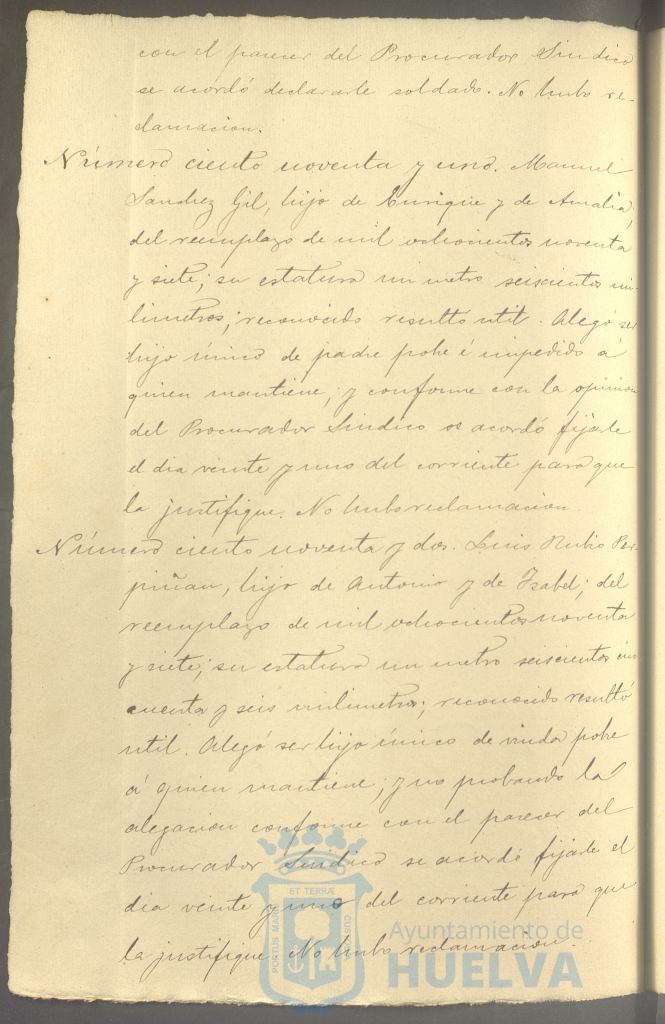 con el parecer del Procurador Sindico
se acordó declararle soldado. No hubo re-
clamacion.
Número ciento noventa y uno. Manuel
Sanchez Gil, hijo de Enrique y de Amalia,
del reemplazo de mil ochocientos noventa
y siete; su estatura un metro seiscientos mi-
limetros; reconocido resultó util. Alegó ser
hijo único de padre pobre é impedido á
quien mantiene; y conforme con la opinion
del Procurador Sindico se acordó fijarle
el dia veinte y uno del corriente para que
la justifique. No hubo reclamacion.
Número ciento noventa y dos. Luis Rubio Per-
piñan, hijo de Antonio y de Isabel; del
reemplazo de mil ochocientos noventa
y siete; su estatura un metro seiscientos cin
cuenta y seis milimetros; reconocido resultó
util. Alegó ser hijo único de viuda pobre
á quien mantiene; y no probando la
alegacion conforme con el parecer del
Procurador Sindico se acordó fijarle el
dia veinte y uno del corriente para que
la justifique. No hubo reclamacion.
PORTUS MARIS ET TERRÆ CUSTODIA
Ayuntamiento de
HUELVA